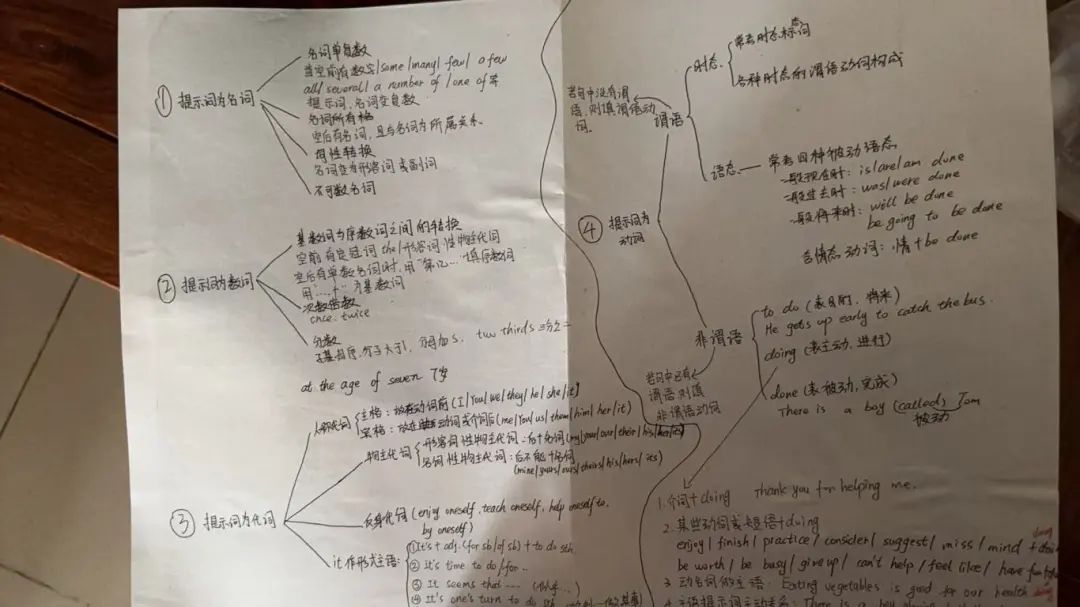 ① 提示词为名词
名词单复数
当空前有数字/some/many/few/a few
all/several/a number of/one of等
提示词,名词变复数
名词所有格
空后有名词,且与名词为所属关系.
词性转换
名词变为形容词或副词
不可数名词
② 提示词为数词
基数词与序数词之间的转换
空前有定冠词the/形容词性物主代词
空后有单数名词时,用"第几…"填序数词
用"…个"为基数词
次数倍数
once. twice
分数
子基母序,分子大于1,分母加s, two thirds 三分之二
at the age of seven 7岁
③ 提示词为代词
人称代词
主格:放在动词前(I/You/we/they/he/she/it)
宾格:放在动词或介词后(me/You/us/them/him/her/it)
物主代词
形容词性物主代词:后+名词(my/your/our/their/his/her/its)
名词性物主代词:后不能+名词
(mine/yours/ours/theirs/his/hers/its)
反身代词(enjoy oneself. teach oneself. help oneself to.
by oneself)
it作形式主语:
①It's+adj.(for sb/of sb)+to do sth.
② It's time to do/for..
③ It seems that ……
④ It's one's turn to do sth
④ 提示词为动词
谓语
若句中没有谓语,则填谓语动词.
时态.
常考时态标志词
各种时态的谓语动词构成
语态
常考四种被动语态
一般现在时: is/are/am done
一般过去时: was/were done
一般将来时: will be done
be going to be done
含情态动词: 情+be done
非谓语
若句中已有谓语则填非谓语动词
to do (表目的,将来)
He gets up early to catch the bus.
doing (表主动,进行)
done (表被动,完成)
There is a boy (called) Tom
被动
1. 介词+doing Thank you for helping me.
2. 某些动词或短语+doing
enjoy/finish/practice/consider/suggest/miss/mind + doing
be worth/be busy/give up/can't help/feel like/have fun
3 动名词做主语: Eating vegetables is good for our health